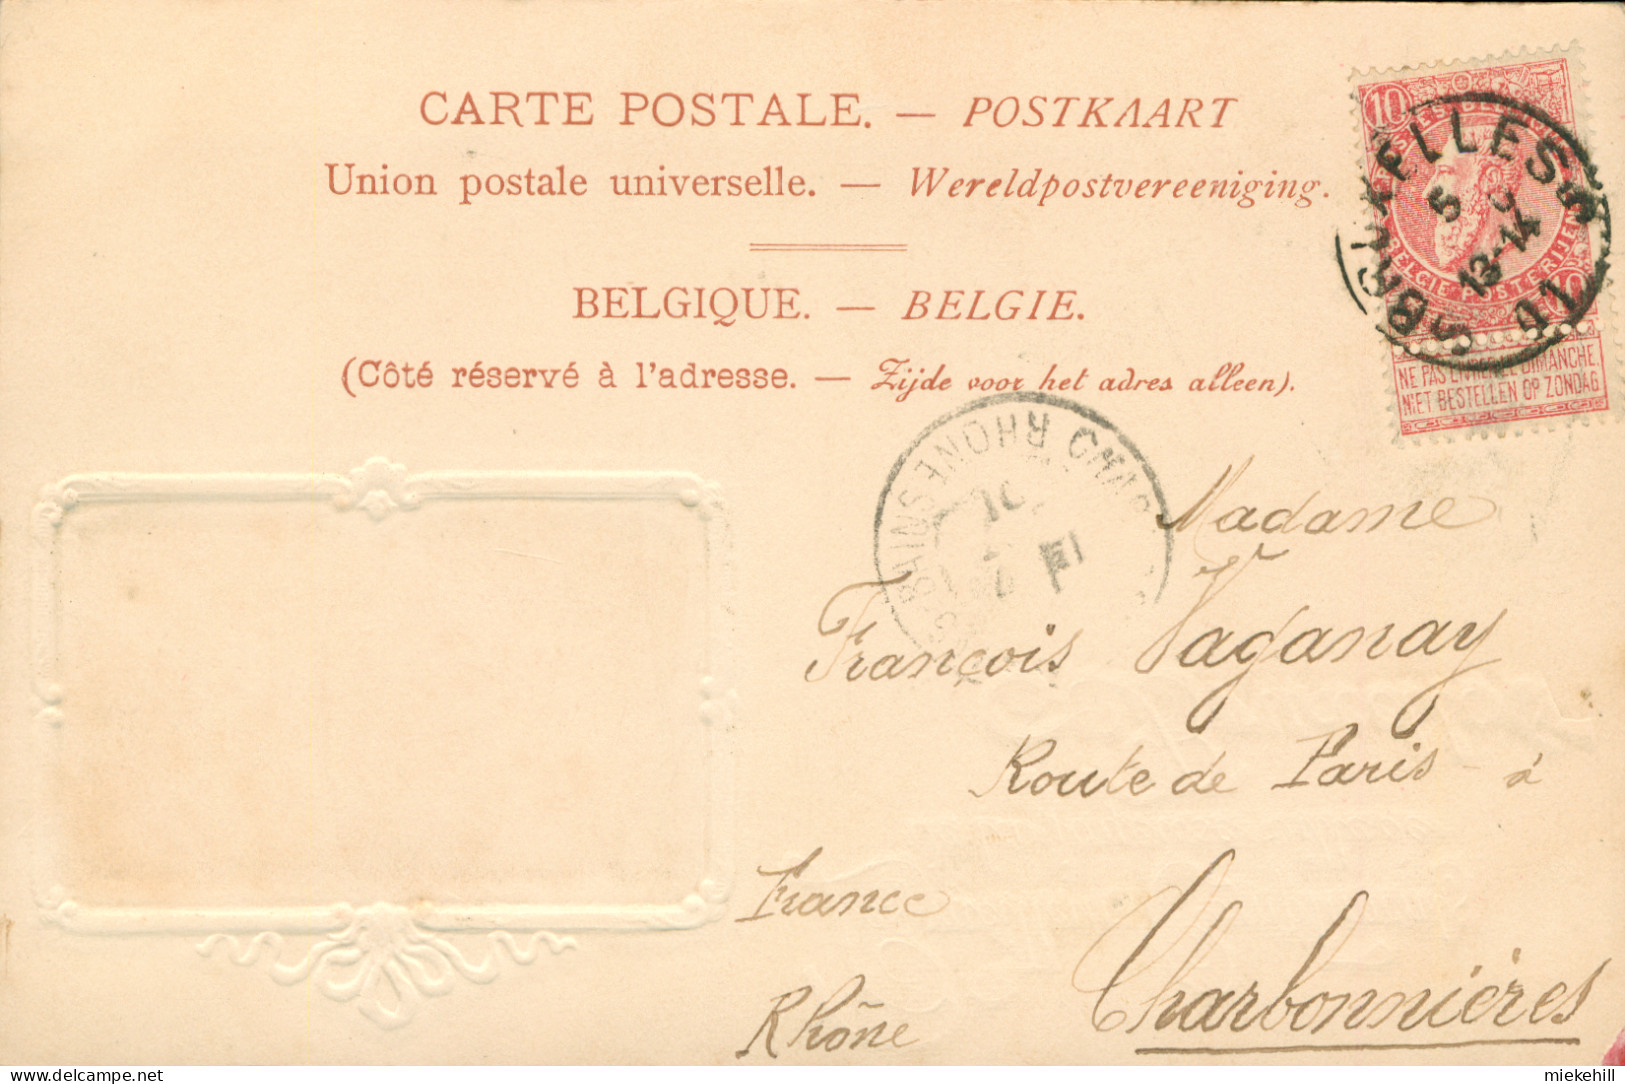 CARTE POSTALE. — POSTKAART
Union postale universelle. — Wereldpostvereeniging.
BELGIQUE. — BELGIE.
(Côté réservé à l'adresse. — Zijde voor het adres alleen).
10
BELGIE POSTERIJEN
10
NE PAS LIVRER LE DIMANCHE.
NIET BESTELLEN OP ZONDAG
BRUXELLES
5
13-14
RHONE
BAINS
Madame
François Vaganay
Route de Paris - à
France
Charbonnières
Rhône
miekehill